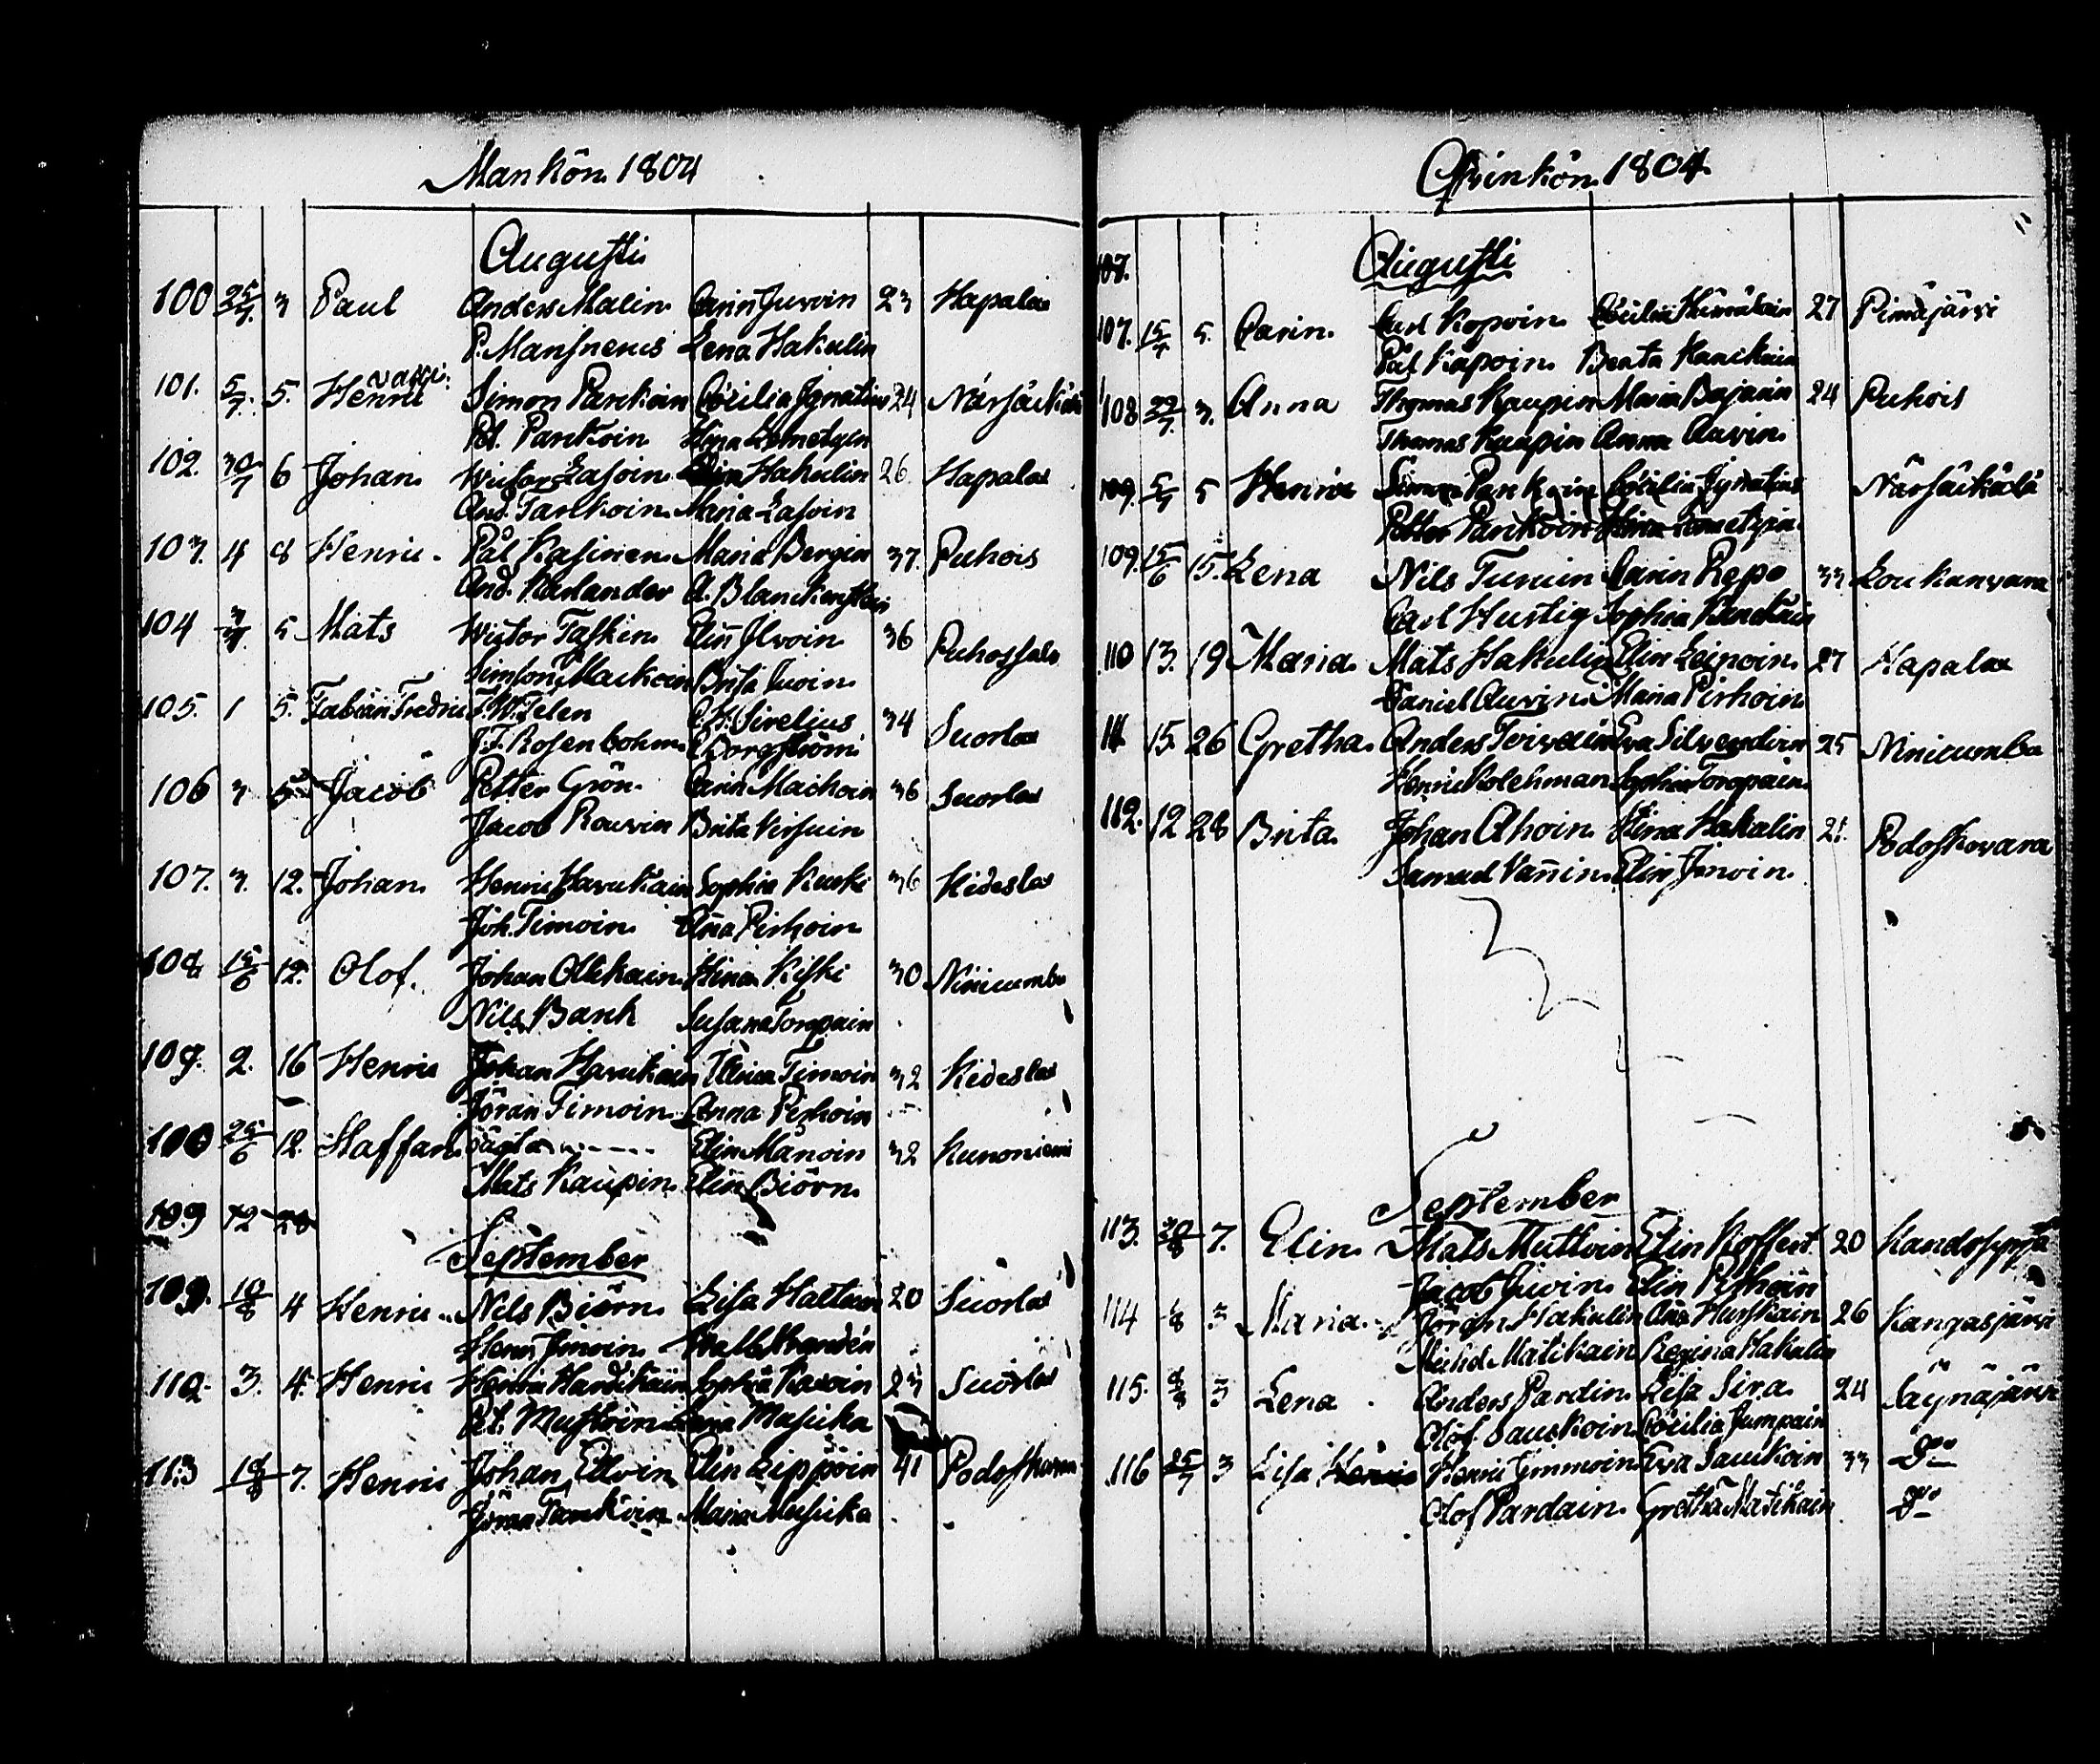 Mankön 1804
Augusti
100 25/7. 3 Paul Anders Malin Carin Jurvin 23 Hapalax
P. Mansnerus Lena Hakulin
101. 5/7. 5. Henric Simon Pankoin Cecilia Ignatius 24 Närsäkkälä
Pet. Pankoin Stina Lemetyin
102. 30/7 6 Johan Lasoin Hakulin 26. Hapalax
And. Tankoin Maria Lasoin
103. 4 8 Henric Pål Kasinen Maria Bergin 37. Puhois
And. Karlander A. Blanckenstein
104 5 Mats Wictor Taskin Elin Ilvoin 36 Puhossalo
Simson Maikoin Brita Juoin
105. 1 5. Fabian Fredric F. W. Telen C. H. Sirelius 34 Suorlax
J. F. Rosenbohm C. Borgström
106 3 5 Jacob Petter Grön Carin Maikoin 36 Suorlax
Jacob Rouvin Brita Versuin
107. 3. 12. Johan Henric Havukain Sophia Kurki 36 Kideslax
Joh. Timoin Ana Pirhoin
108 15/6 12. Olof. Johan Ollikain Stina Kiski 30 Ninicumbo
Nils Bank Susana Torpain
109. 2. 16 Henric Johan Havukain Stina Timoin 32 Kideslax
Jöran Timoin Anna Pirhoin
100 25/6 12. Staffan Elin Mänoin 32 Kunoniemi
Mats Kaupin Elin Biörn
109 12 28
September
109. 10/8 4 Henric Nils Biörn Lisa Hattuin 20 Suorlax
Henr Imoin
112. 3. 4. Henric Henric Havukain Sophia Kavoin 23 Suorlax
Pet. Mustoin Lena Musicka
113 18/8 7. Henric Johan Elvoin Elin Lippoin 41 Podoskavara
Jöran Tankoin Maria Musicka
Qvinkön 1804.
107.
Augusti
107. 15/7 5. Carin Carl Kopoin Cecilia Hämäläin 27 Pimäjärvi
Pål Kapoin Beata Kanikain
108 29/7. 3. Anna Thomas Kaupin Maria Bajarin 24 Puhois
Thomas Kaupin Anna Auvin
109. 5/7 5 Henric Simon Pankoin Cecilia Ignatius Närsäkkälä
Petter Pankoin Stina Lemetyin
109. 15/6 15. Lena Nils Turuin Carin Repo 33 Loukunvara
Carl Hustig Sophia
110 13. 19 Maria Mats Hakulin Elin Leinoin 27 Hapalax
Daniel Auvin Maria Pirhoin
111 15. 26 Gretha Anders Torvain Eva Silvendoin 25 Ninicumba
Henric Kolehman Sophia Toropain
112. 12 28 Brita Johan Ahoin Stina Hakulin 21. Podoskavara
Samuel Vänin Elin Imoin
September
113. 30/8 7. Elin Mats Muttoin Elin Koffert 20
Jacob Juvin Elin Pirhoin
114 6/8 3 Maria Jöran Hakulin Ana Hurskain 26 Kangasjärvi
Michel Matikain Regina Hakulin
115. 8/8 3 Lena Anders Pardin Lisa Sira 24 Säynäjärvi
Olof Sauckoin Cecilia Jumpain
116 25/7 3 Lisa Henric Immoin Eva Saukoin 33 Do
Olof Pardain Gretha Matikain Do